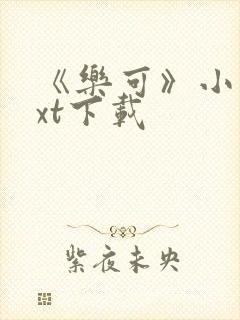 《樂可》小
xt下載
紫夜未央